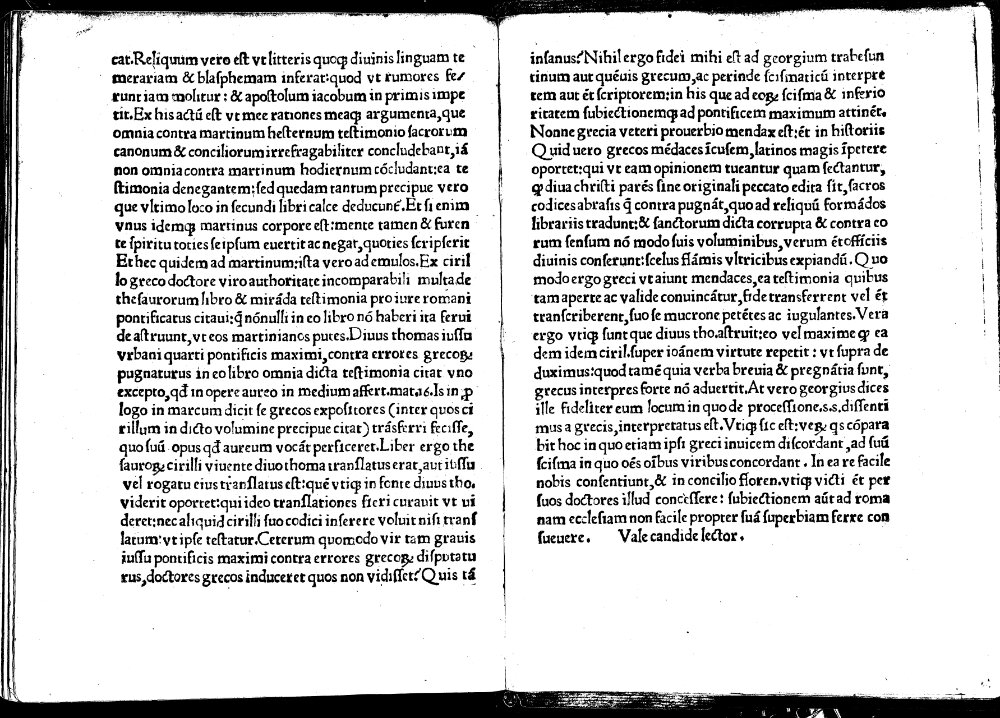 cat. Reliquum vero est vt litteris quoqꝫ diuinis linguam te
merariam & blasphemam inferat: quod vt rumores fe/
runt iam molitur: & apostolum iacobum in primis impe
tit. Ex his actū est vt mee rationes meaqꝫ argumenta, que
omnia contra martinum hesternum testimonio sacrorum
canonum & conciliorum irrefragabiliter concludebant, iā
non omnia contra martinum hodiernum cōcludant: ea te
stimonia denegantem: sed quedam tantum precipue vero
que vltimo loco in secundi libri calce deducunt̄. Et si enim
vnus idemqꝫ martinus corpore est: mente tamen & furen
te spiritu toties seipsum euertit ac negat, quoties scripserit
Et hec quidem ad martinum: ista vero ad emulos. Ex ciril
lo greco doctore viro authoritate incomparabili multa de
thesaurorum libro & mirāda testimonia pro iure romani
pontificatus citaui: q̄ nōnulli in eo libro nō haberi ita ferui
de astruunt, vt eos martinianos putes. Diuus thomas iussu
vrbani quarti pontificis maximi, contra errores grecoꝝ
pugnaturus in eo libro omnia dicta testimonia citat vno
excepto, qd̄ in opere aureo in medium affert. mat. 16. Is in ꝓ
logo in marcum dicit se grecos expositores (inter quos ci
rillum in dicto volumine precipue citat) trāsferri fecisse,
quo suū opus qd̄ aureum vocāt perficeret. Liber ergo the
sauroꝝ cirilli viuente diuo thoma translatus erat, aut iussu
vel rogatu eius trāslatus est: quē vtiqꝫ in fonte diuus tho.
viderit oportet: qui ideo translationes fieri curauit vt vi
deret: nec aliquid cirilli suo codici inserere voluit nisi trans
latum: vt ipse testatur. Ceterum quomodo vir tam grauis
iussu pontificis maximi contra errores grecoꝝ disputatu
rus, doctores grecos induceret quos non vidisset? Quis tā
insanus? Nihil ergo fidei mihi est ad georgium trabesun
tinum aut quēuis grecum, ac perinde scismaticū interpre
tem aut ēt scriptorem: in his que ad eoꝝ scisma & inferio
ritatem subiectionemqꝫ ad pontificem maximum attinēt.
Nonne grecia veteri prouerbio mendax est: ēt in historiis
Quid uero grecos mēdaces īcusem, latinos magis īpetere
oportet: qui vt eam opinionem tueantur quam sectantur,
qꝫ diua christi parēs sine originali peccato edita sit, sacros
codices abrasis q̄ contra pugnāt, quo ad reliquū formādos
librariis tradunt: & sanctorum dicta corrupta & contra eo
rum sensum nō modo suis voluminibus, verum ēt officiis
diuinis conserunt: scelus flāmis vltricibus expiandū. Quo
modo ergo greci vt aiunt mendaces, ea testimonia quibus
tam aperte ac valide conuincātur, fide transferrent vel ēt
transcriberent, suo se mucrone petētes ac iugulantes. Vera
ergo vtiqꝫ sunt que diuus tho. astruit: eo vel maxime qꝫ ea
dem idem ciril. super ioānem virtute repetit: vt supra de
duximus: quod tamē quia verba breuia & pregnātia sunt,
grecus interpres forte nō aduertit. At vero georgius dices
ille fideliter eum locum in quo de processione. s. s. dissenti
mus a grecis, interpretatus est. Vtiqꝫ sic est: veꝝ qs cōpara
bit hoc in quo etiam ipsi greci inuicem discordant, ad suū
scisma in quo oēs oībus viribus concordant. In ea re facile
nobis consentiunt, & in concilio floren. vtiqꝫ victi ēt per
suos doctores illud concessere: subiectionem aūt ad roma
nam ecclesiam non facile propter suā superbiam ferre con
sueuere. Vale candide lector.